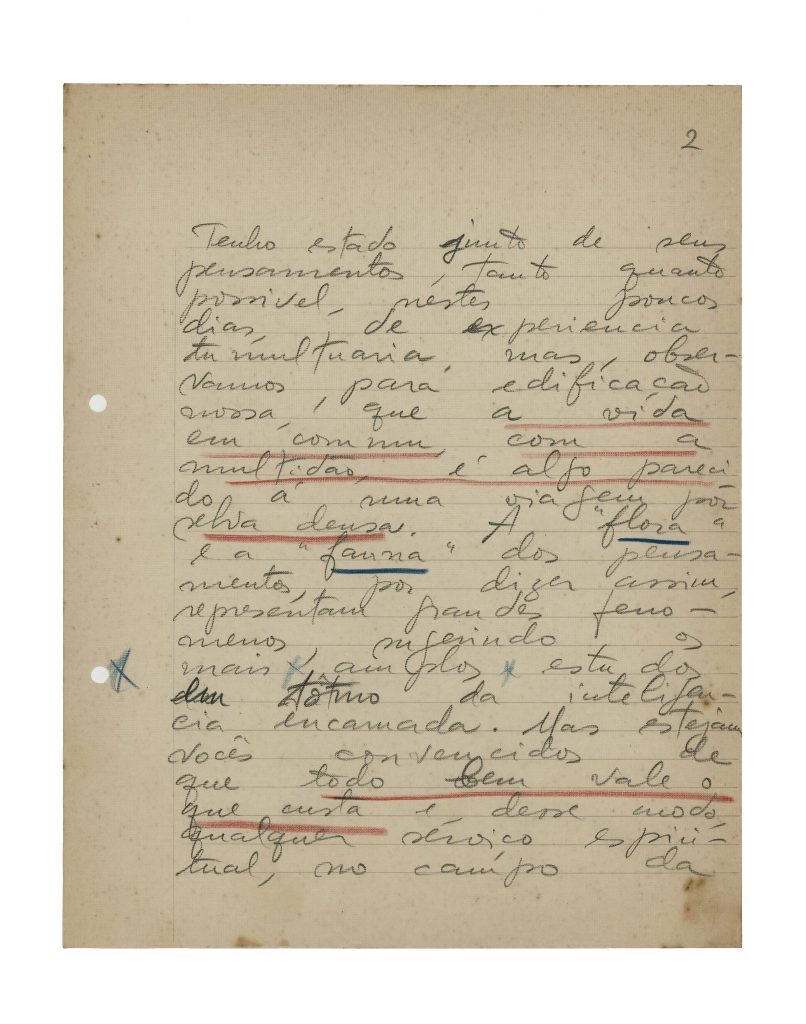 2
Tenho estado junto de seus
pensamentos, tanto quanto
possivel, nestes poucos
dias, de experiencia
tumultuaria, mas, obser-
vamos, para edificação
nossa, que a vida
em commum, com a
multidão, é algo pareci
do á uma viagem por
selva densa. A "flora"
e a "fauna" dos pensa-
mentos, por dizer assim,
representam grandes feno-
menos, sugerindo os
mais amplos estudos
em tôrno da inteligen-
cia encarnada. Mas estejam
vocês convencidos de
que todo bem vale o
que custa e, desse modo,
qualquer serviço espiri-
tual, no campo da